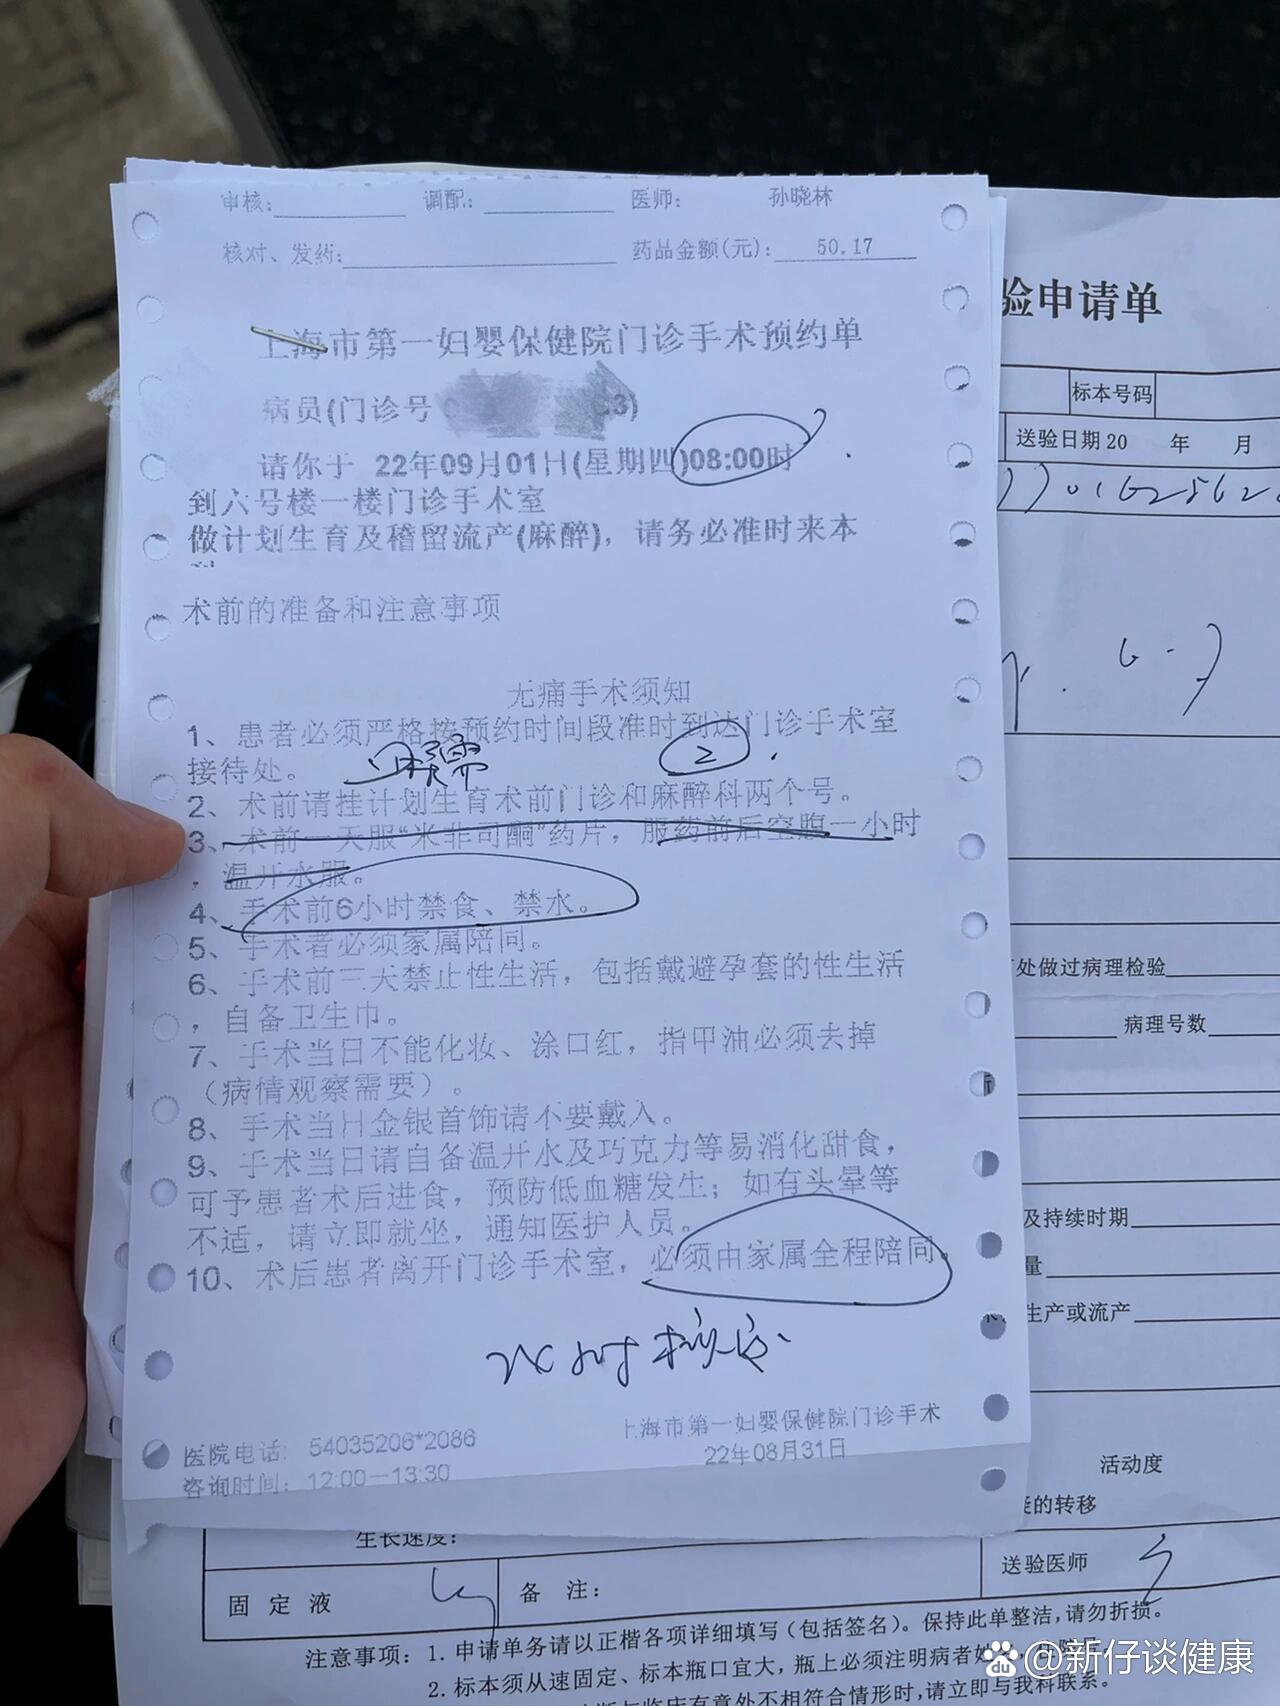 审核: 调配: 医师: 孙晓林
核对、发药: 药品金额(元): 50.17
上海市第一妇婴保健院门诊手术预约单
病员(门诊号 3)
请你于 22年09月01日(星期四)08:00时
到六号楼一楼门诊手术室
做计划生育及稽留流产(麻醉)，请务必准时来本
术前的准备和注意事项
无痛手术须知
1、患者必须严格按预约时间段准时到达门诊手术室
接待处。
2
2、术前请挂计划生育术前门诊和麻醉科两个号。
3、术前一天服“米非司酮”药片，服药前后空腹一小时
，温开水服。
4、手术前6小时禁食、禁水。
5、手术者必须家属陪同。
6、手术前三天禁止性生活，包括戴避孕套的性生活
，自备卫生巾。
7、手术当日不能化妆、涂口红，指甲油必须去掉
（病情观察需要）。
8、手术当日金银首饰请不要戴入。
9、手术当日请自备温开水及巧克力等易消化甜食，
可予患者术后进食，预防低血糖发生；如有头晕等
不适，请立即就坐，通知医护人员。
10、术后患者离开门诊手术室，必须由家属全程陪同。
上海市第一妇婴保健院门诊手术
22年08月31日
医院电话: 54035206*2086
咨询时间: 12:00—13:30
验申请单
标本号码
送验日期20 年 月
处做过病理检验
病理号数
及持续时期
量
生产或流产
活动度
的转移
生长速度:
固定液
备 注:
送验医师
注意事项: 1. 申请单务请以正楷各项详细填写(包括签名)。保持此单整洁,请勿折损。
2. 标本须从速固定、标本瓶口宜大,瓶上必须注明病者姓
与临床有意外不相符合情形时,请立即与我科联系。
@新仔谈健康